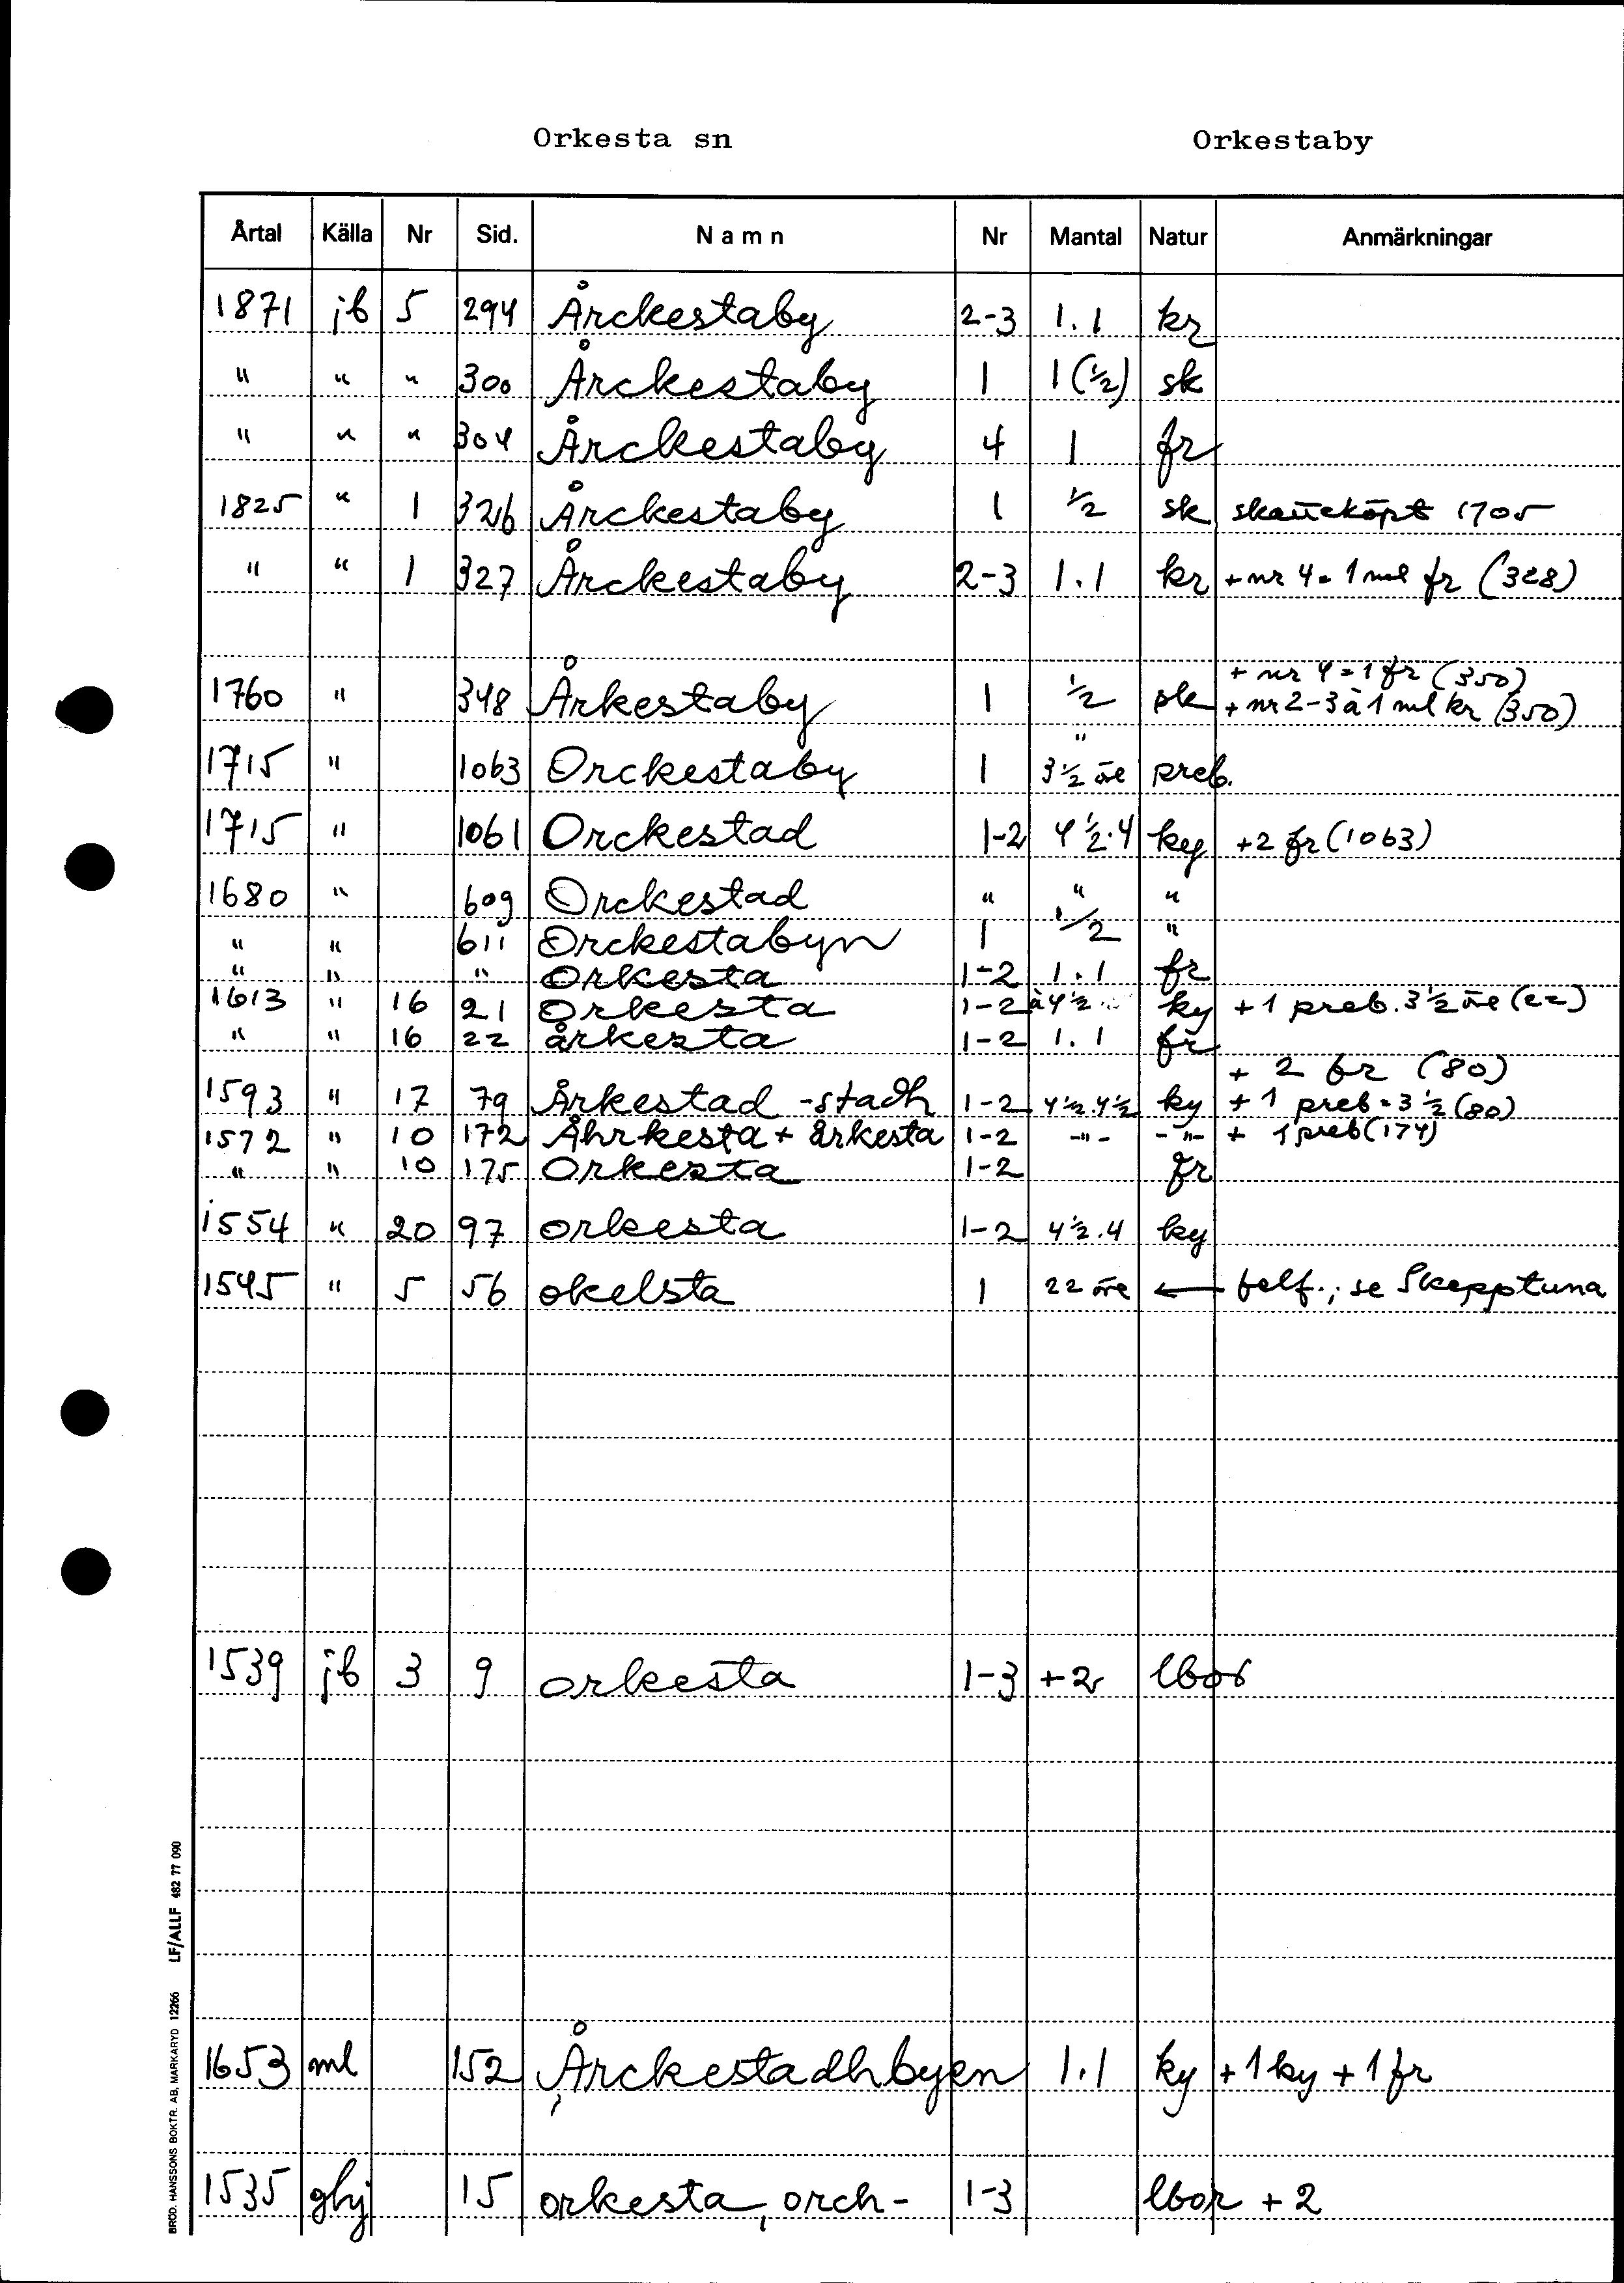 Orkesta sn Orkestaby
Årtal Källa Nr Sid. Namn Nr Mantal Natur Anmärkningar
1871 jb 5 294 Årckestaby 2-3 1.1 kr
" " " 300 Årckestaby 1 1 (½) sk
" " " 304 Årckestaby 4 1 fr
1825 " 1 326 Årckestaby 1 ½ sk skatteköpt 1705
" " 1 327 Årckestaby 2-3 1.1 kr + nr 4 = 1 ml fr (328)
+ nr 4 = 1 fr (350)
1760 " 348 Årkestaby 1 ½ sk + nr 2-3 à 1 ml kr (350)
1715 " 1063 Orckestaby 1 3½ öre preb.
1715 " 1061 Orckestad 1-2 4½.4 ky +2 fr (1063)
1680 " 609 Orckestad " " "
" " 611 Orckestabyn 1 ½ "
" " " Orkesta 1-2 1.1 fr
1613 " 16 21 Orkesta 1-2 à 4½ ky + 1 preb. 3½ öre (22)
" " 16 22 årkesta 1-2 1.1 fr
+ 2 fr (80)
1593 " 17 79 Årkestad -stadh 1-2 4½.4½ ky + 1 preb = 3½ (80)
1572 " 10 172 Åhrkesta + årkesta 1-2 -"- -"- + 1 preb (174)
" " 10 175 Orkesta 1-2 fr
1554 " 20 97 orkesta 1-2 4½.4 ky
1545 " 5 56 okelsta 1 22 öre ← felf.; se Skepptuna
1539 jb 3 9 orkesta 1-3 +2 lbor
1653 ml 152 Årckestadhbyen 1.1 ky + 1 ky + 1 fr
1535 ghj 15 orkesta, orch- 1-3 lbor + 2
BRÖD. HANSSONS BOKTR. AB, MARKARYD 12266 LF/ALLF 482 77 090